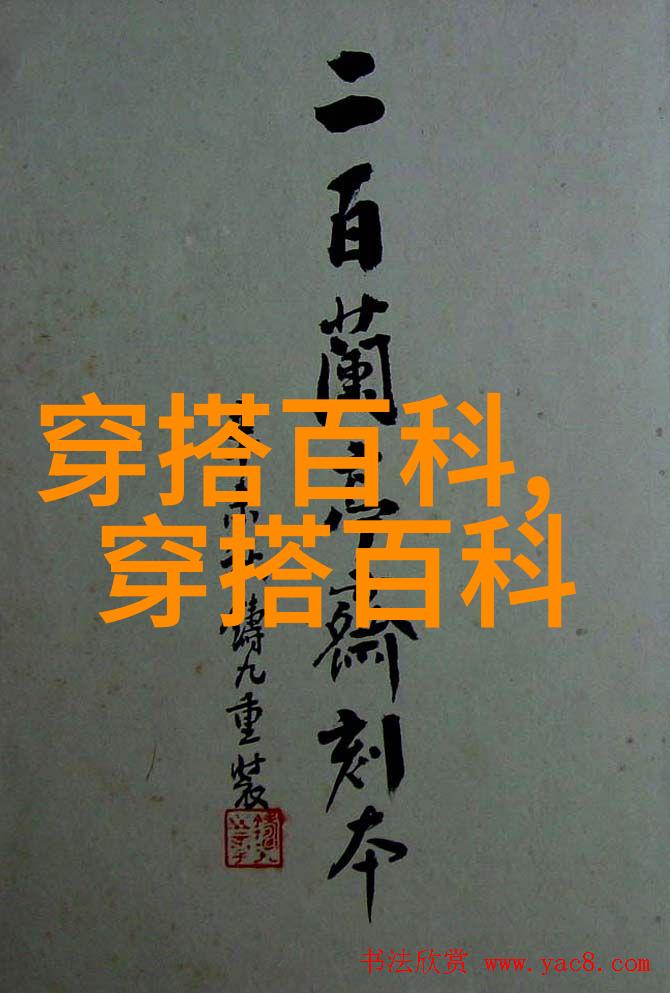 二百蘭亭齋刻本
鑄九重裝
穿搭百科,
穿搭百科
书法欣赏 www.yac8.com